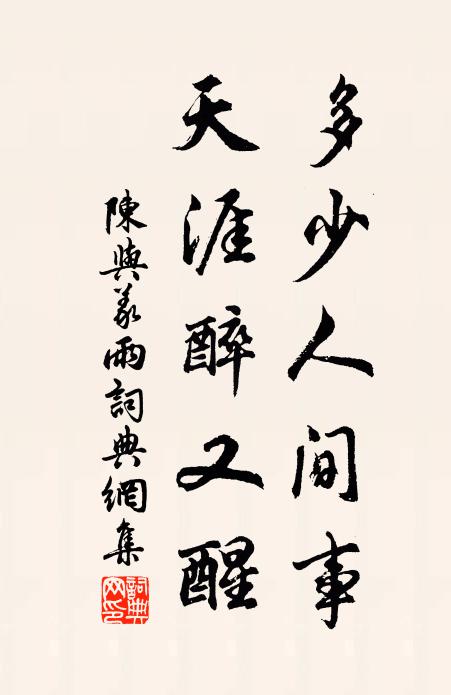 多少人间事
天涯醉又醒
陳與义雨詞典網集
詞典网印